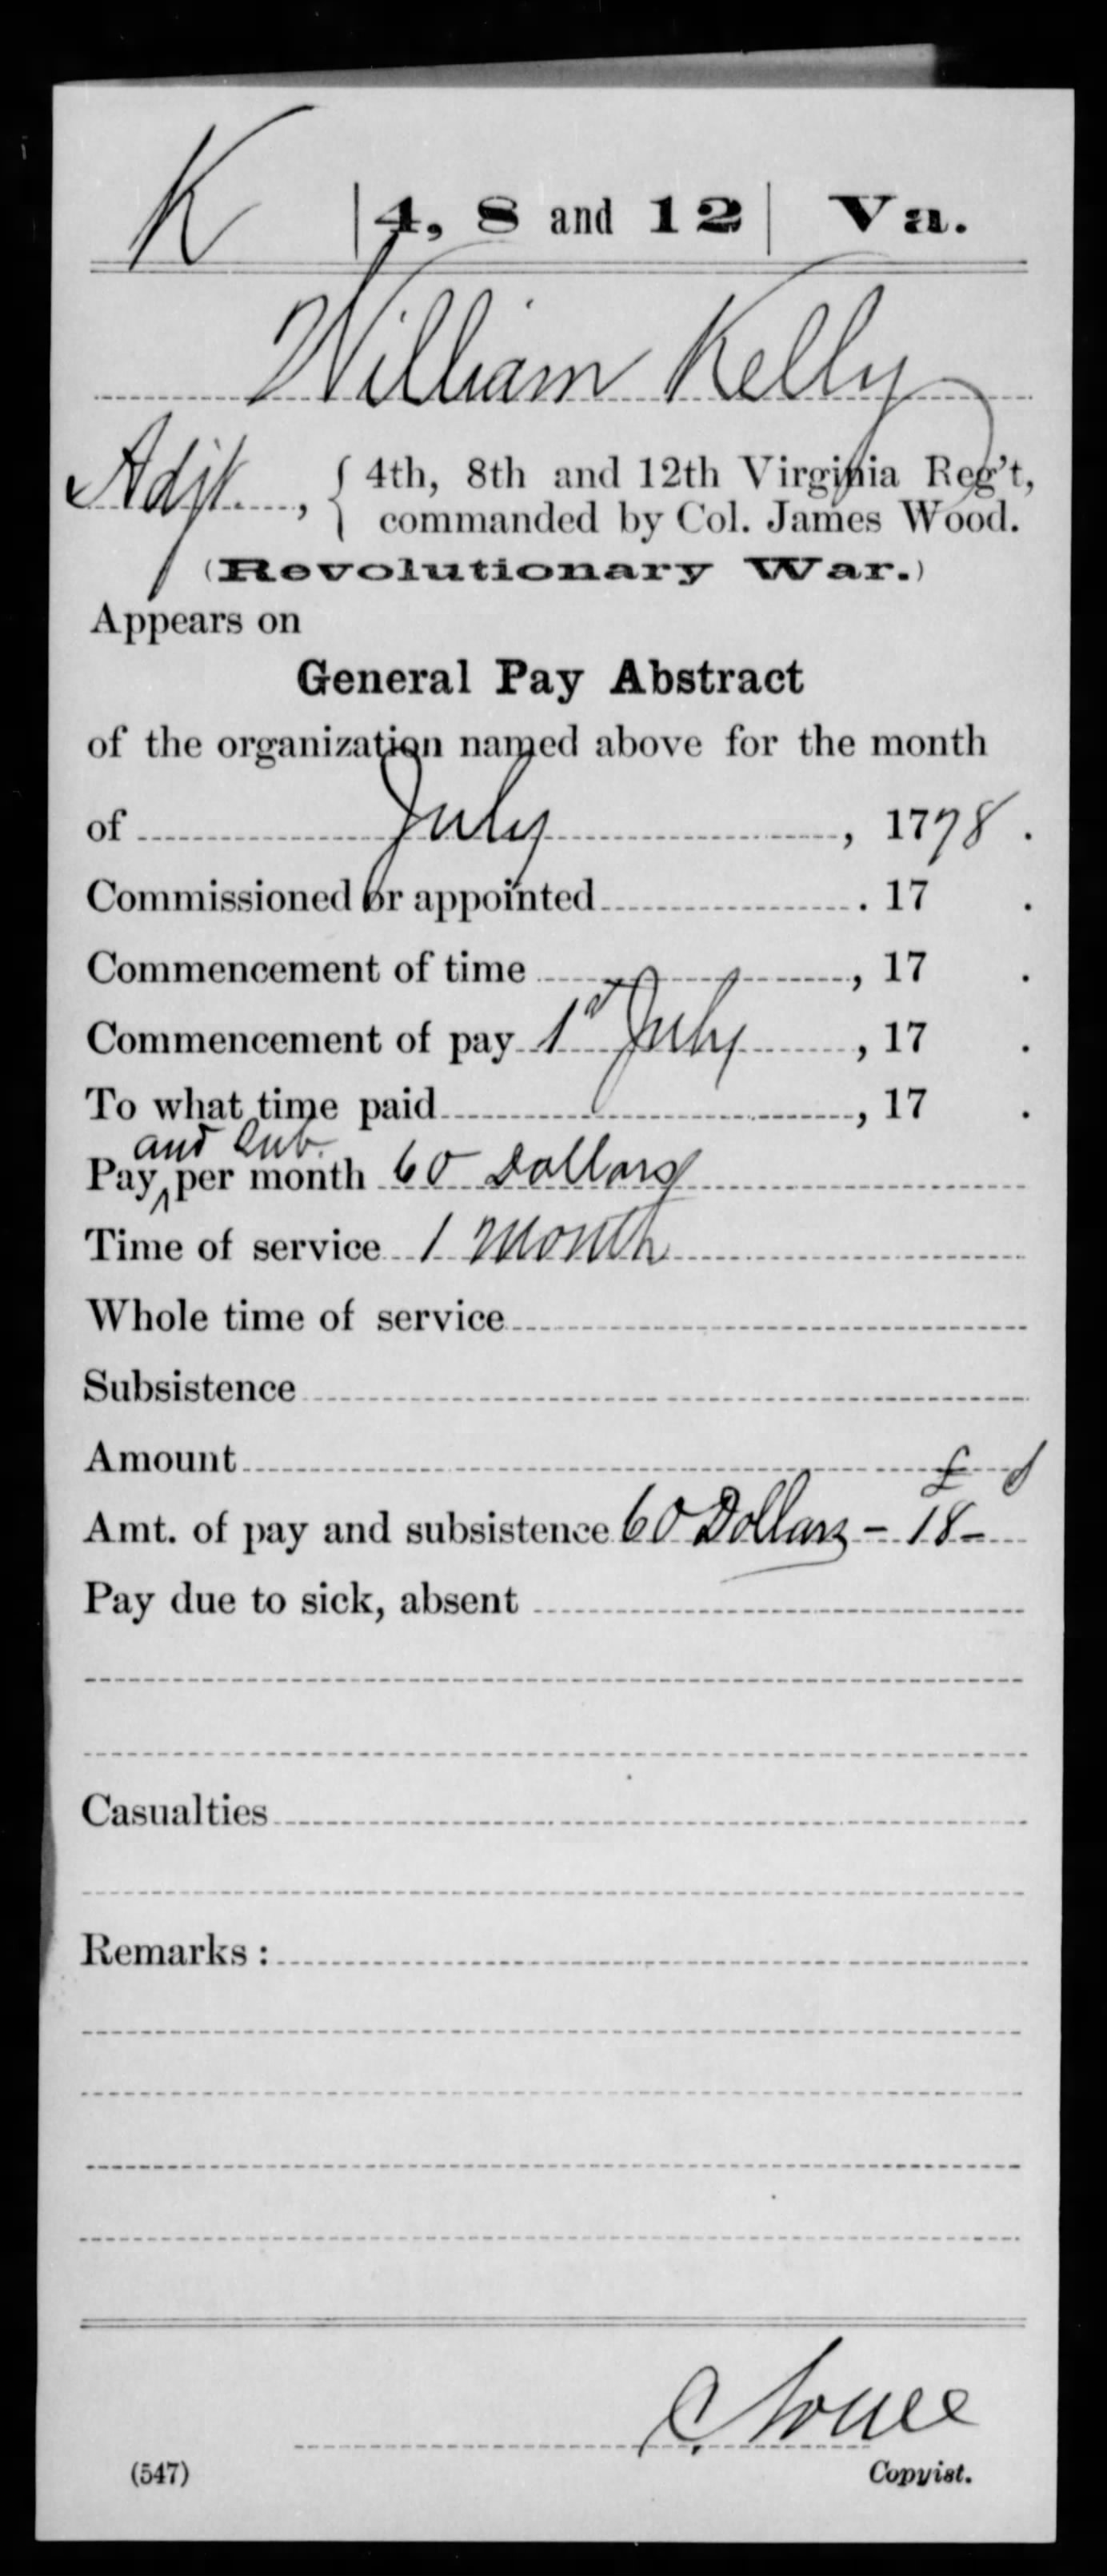 K | 4, 8 and 12 | Va.
William Kelly
Adjt., { 4th, 8th and 12th Virginia Reg't,
commanded by Col. James Wood.
(Revolutionary War.)
Appears on
General Pay Abstract
of the organization named above for the month
of July, 1778.
Commissioned or appointed . 17 .
Commencement of time , 17 .
Commencement of pay 1st July , 17 .
To what time paid , 17 .
and Sub.
Pay ^ per month 60 Dollars
Time of service 1 Month
Whole time of service
Subsistence
Amount £
Amt. of pay and subsistence 60 Dollars - 18 -
Pay due to sick, absent
Casualties
Remarks :
C.
(547) Copyist.